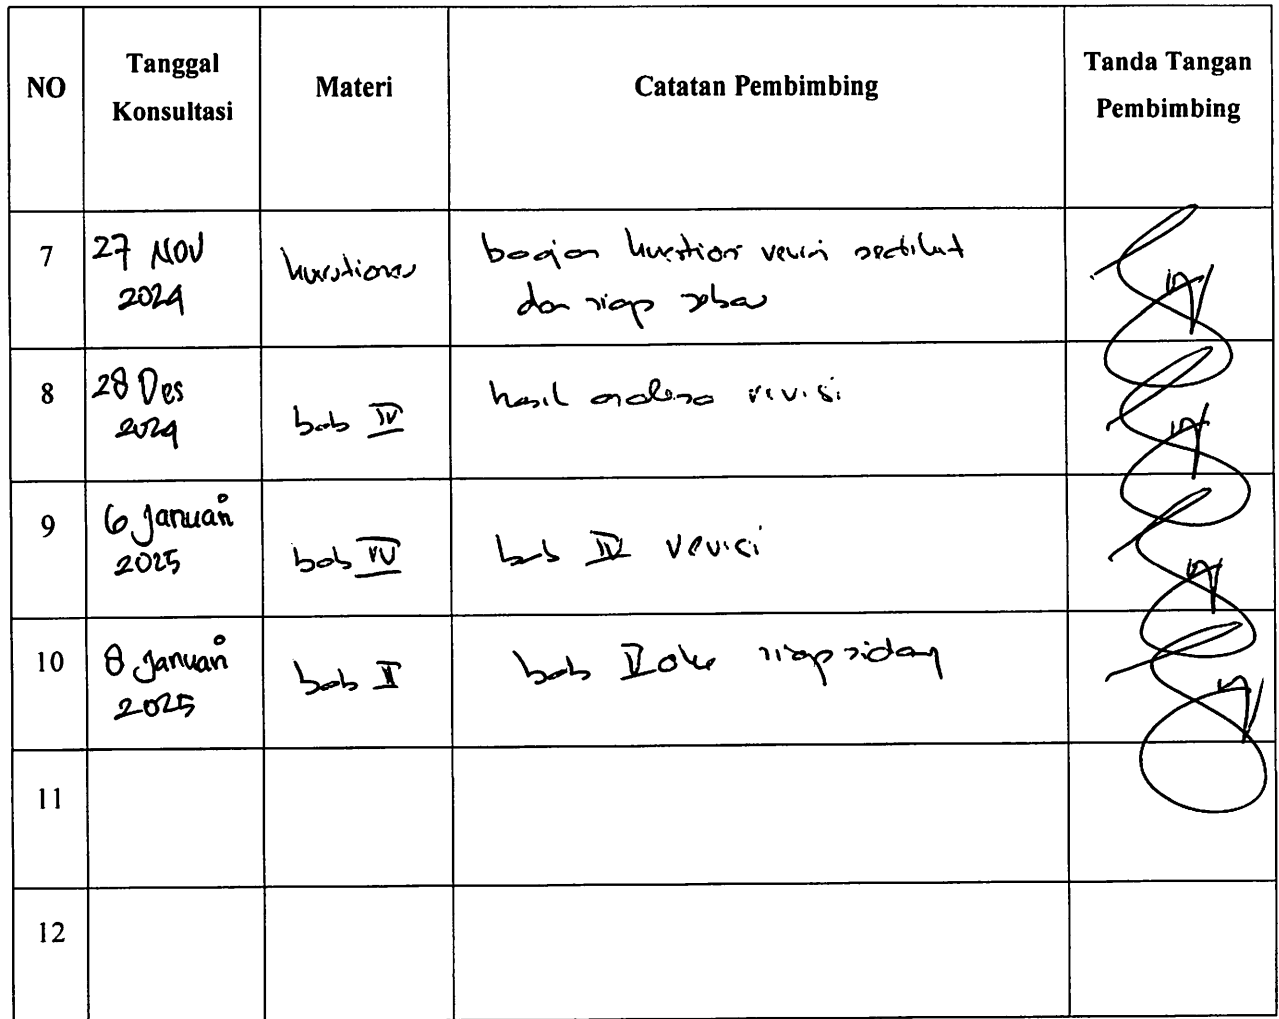 NO Tanggal Konsultasi Materi Catatan Pembimbing Tanda Tangan Pembimbing
7 27 NOV kuestioner bagian kuestion revisi sedikit
2024 dan siap sebar
8 28 Des hasil analisa revisi
2024 bab IV
9 6 Januari
2025 bab IV bab IV revisi
10 8 Januari bab V oke siap sidang
2025 bab
11
12